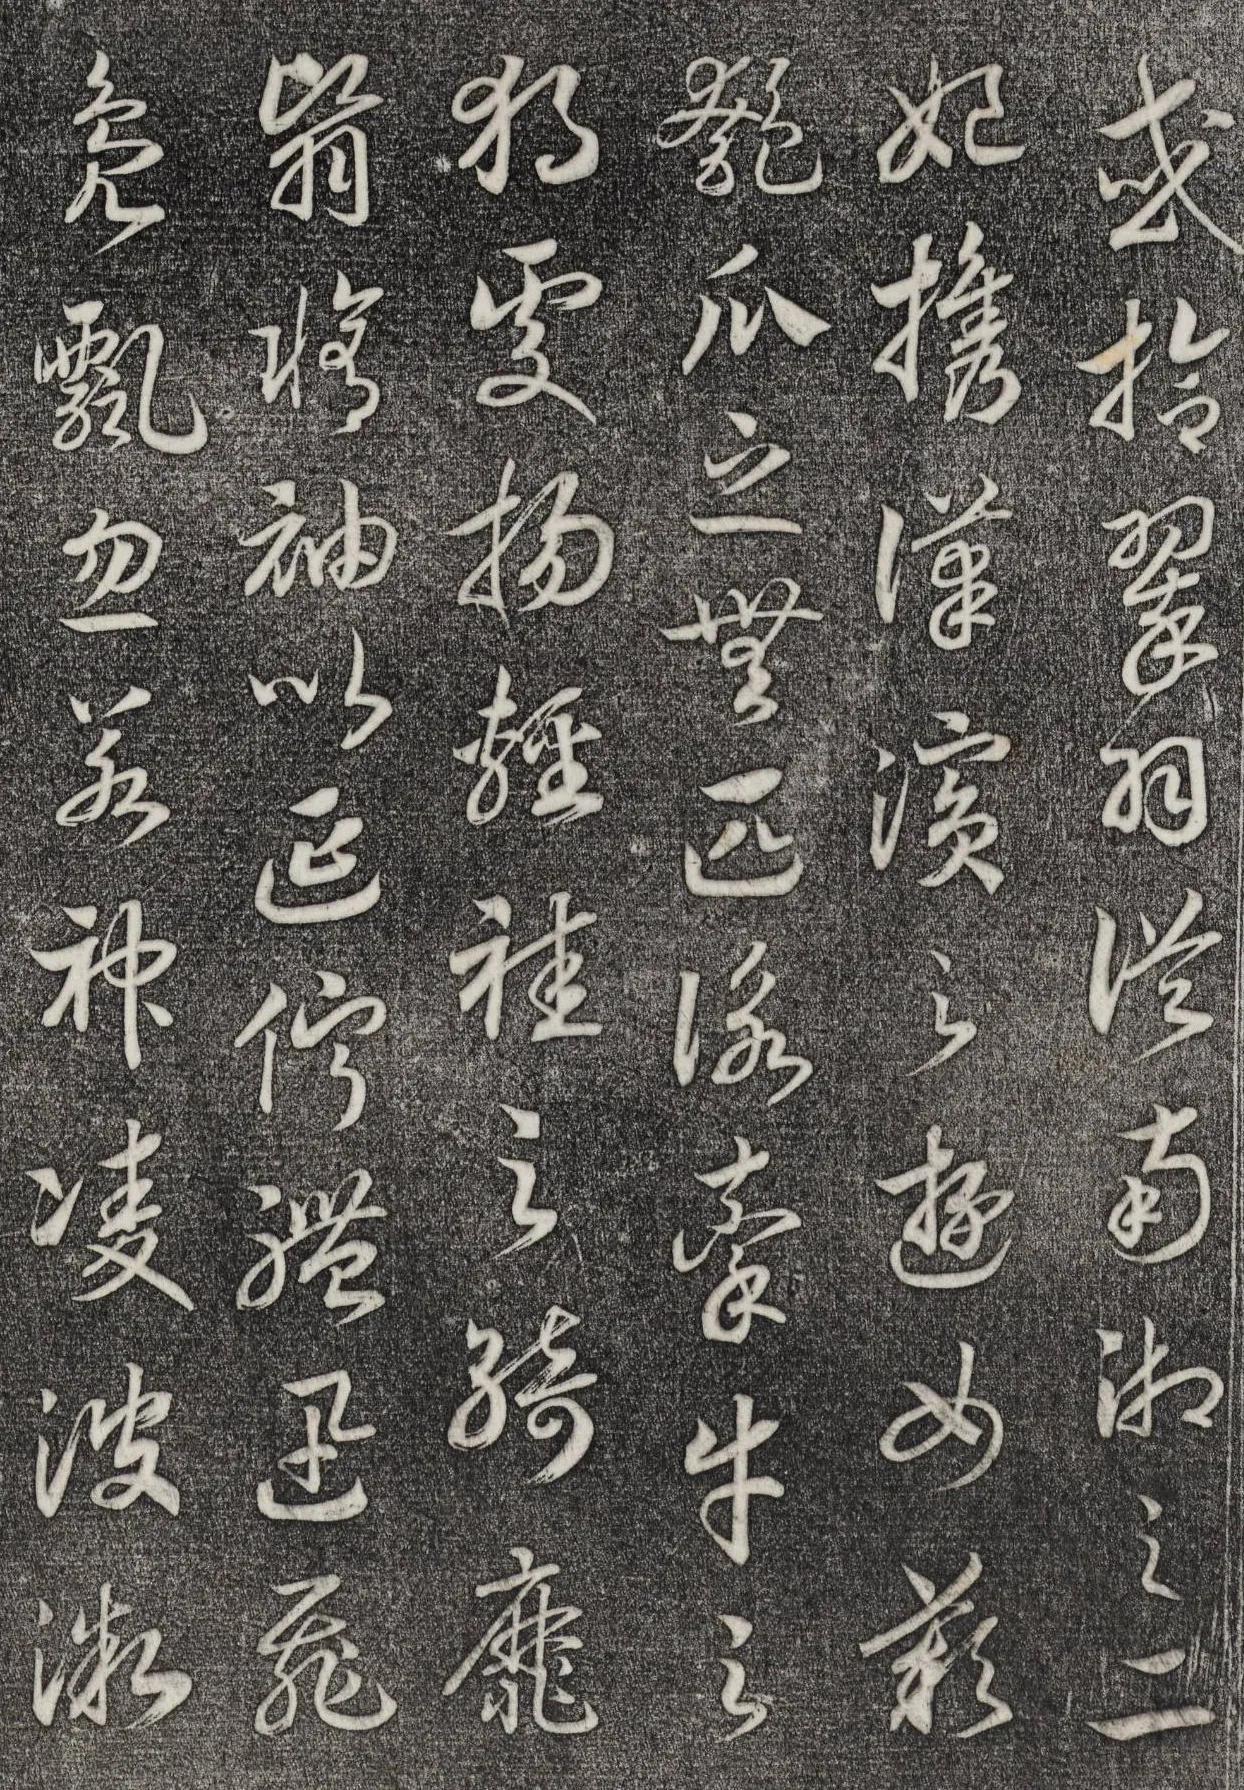 或拾翠羽從南湘之二
妃攜漢濱之遊女歎
匏瓜之無匹詠牽牛之
獨處揚輕袿之綺靡
翳脩袖以延佇體迅飛
鳧飄忽若神凌波溦